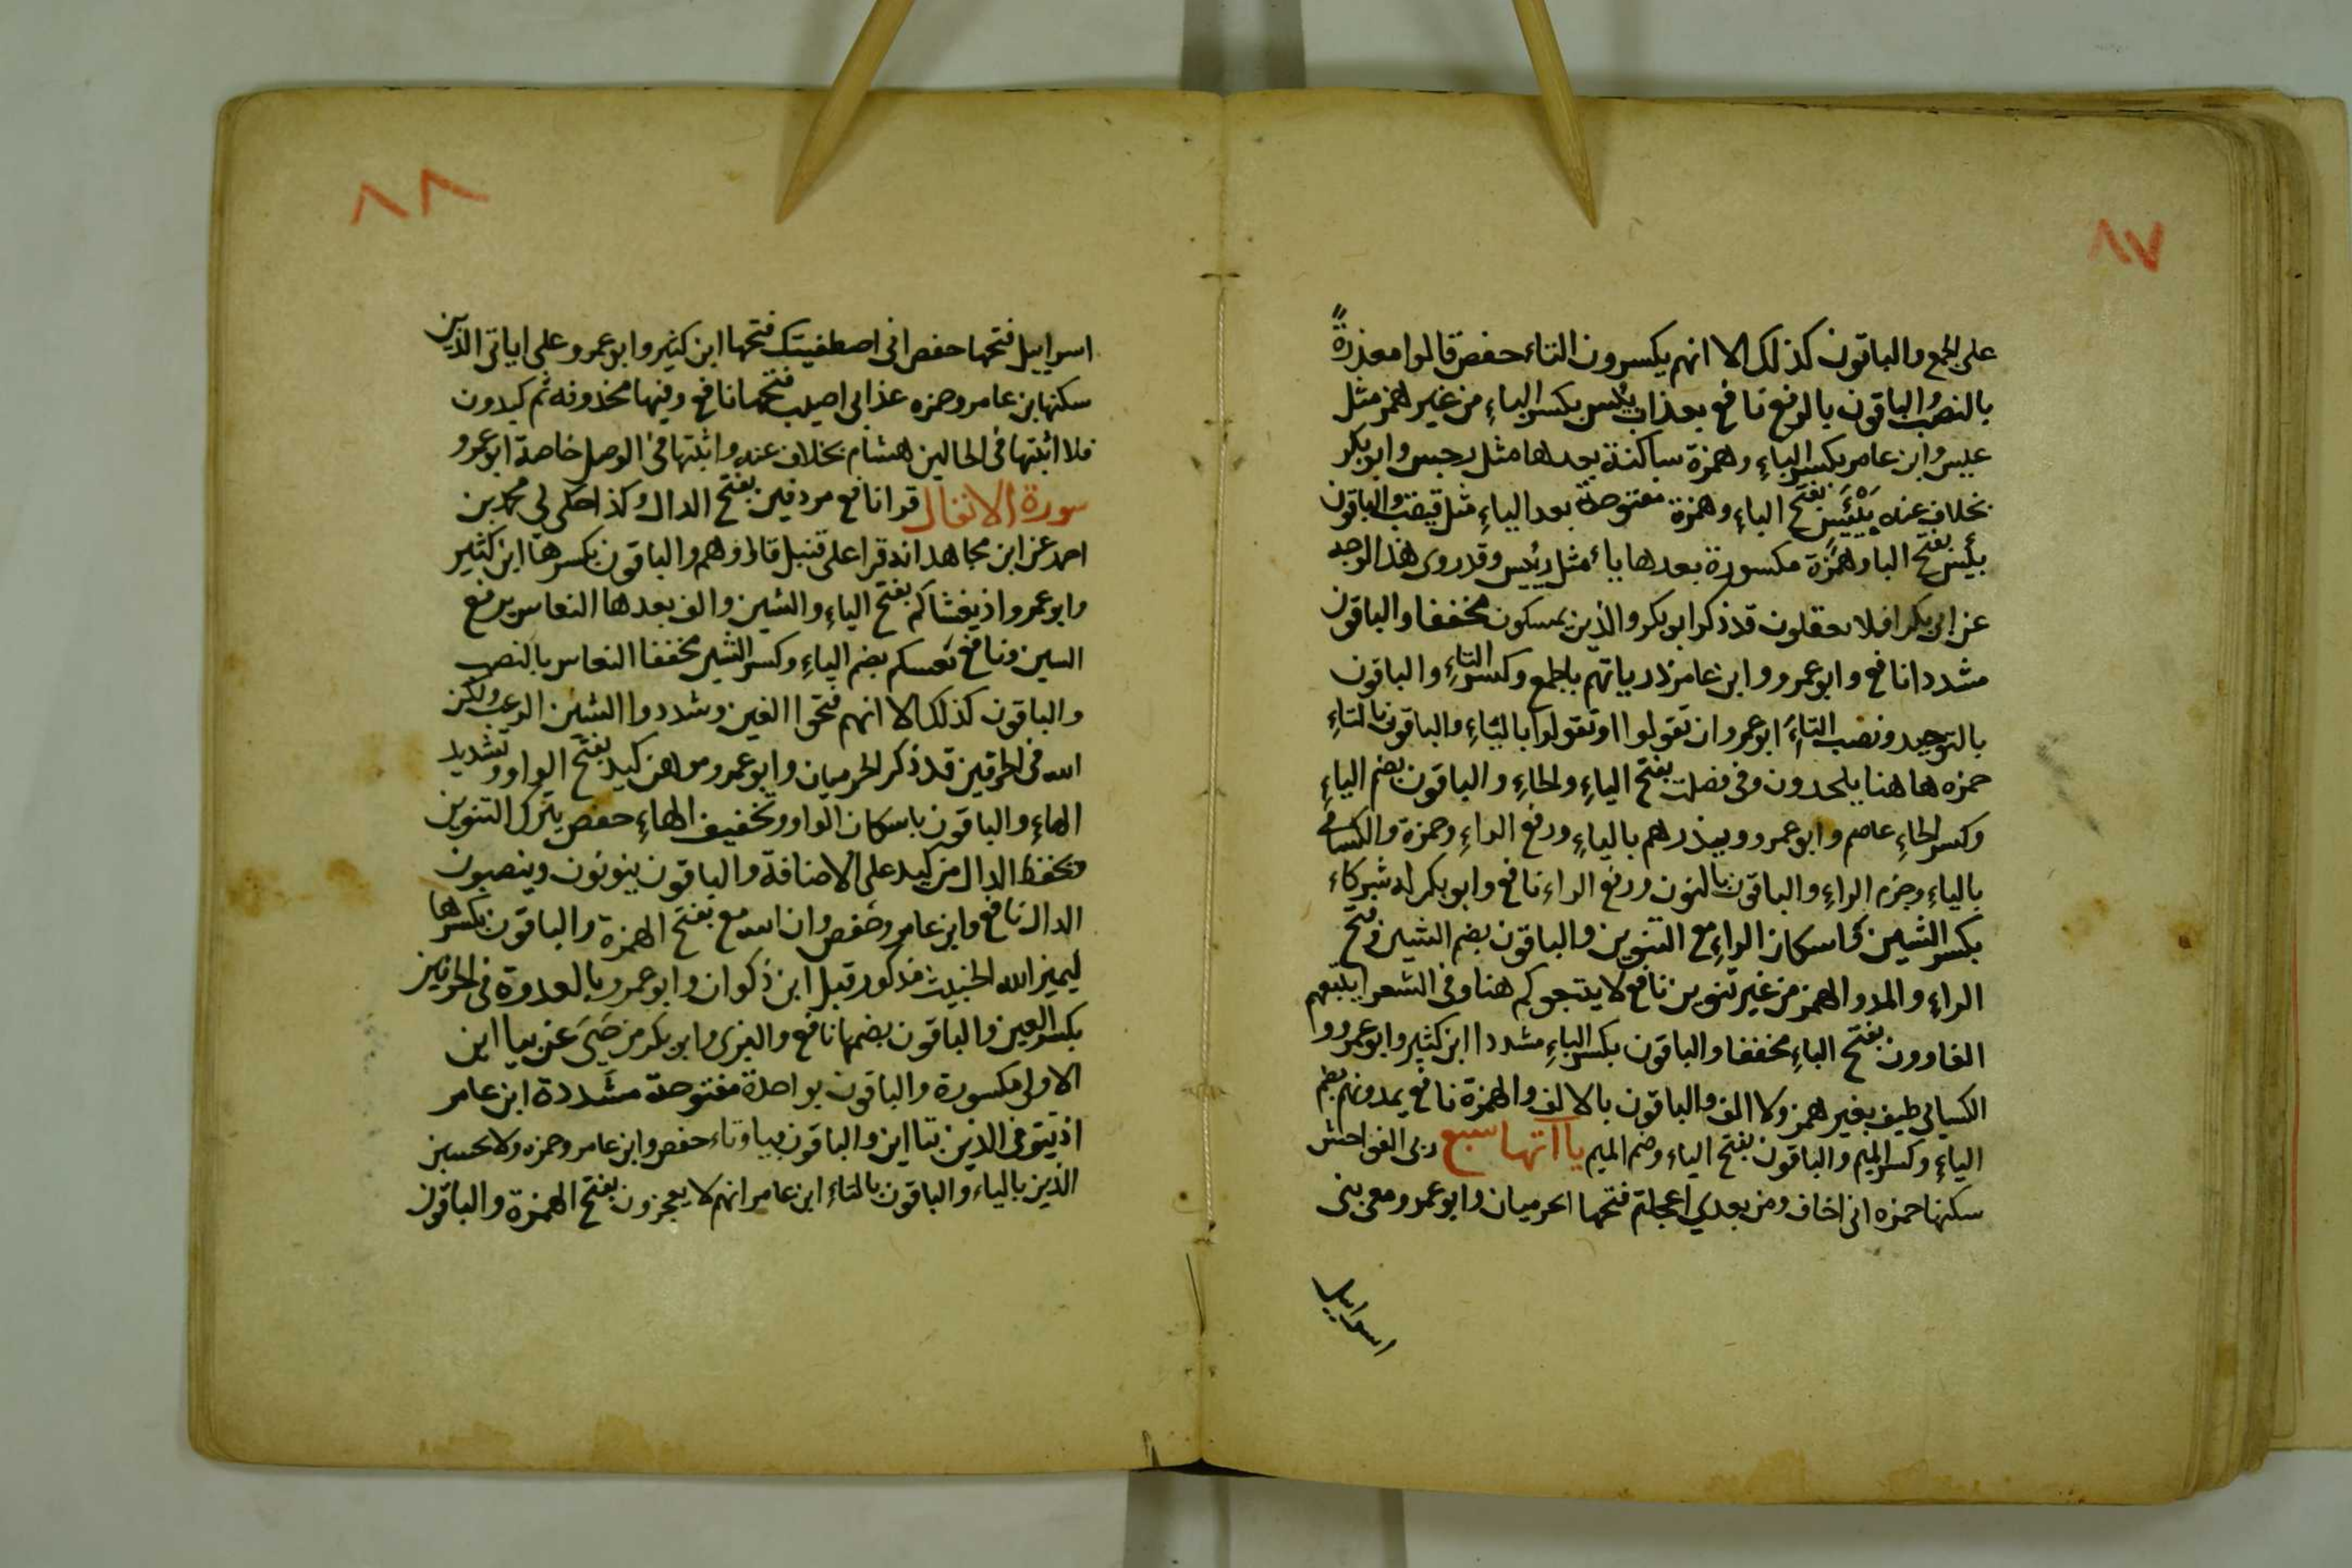 ٨٧
على الجمع والباقون كذلك الا انهم يكسرون التاء حفص قالوا معذرةً
بالنصب والباقون بالرفع نافع بعذاب بيس بكسر الباءِ من غير همز مثل
عيس وابن عامر بكسر الباءِ وهمزة ساكنة بعدها مثل رجس وابو بكر
بخلاف عنه بفتح الباءِ وهمزة مفتوحة بعد الياءِ مثل والباقون
بئيس بفتح البا وهمزة مكسورة بعدها ياء مثل رئيس وقد روى هذا الوجه
عن ابى بكر افلا تعقلون قد ذكر ابو بكر والذين يمسكون مخففا والباقون
مشددا نافع وابو عمرو وابن عامر ذرياتهم بالجمع وكسر التاءِ والباقون
بالتوحيد ونصب التاءَ ابو عمرو ان تقولوا او تقولوا بالياءِ والباقون بالتاءِ
حمزه ها هنا يلحدون وفى فصلت بفتح الياءِ والحاءِ والباقون بضم الياءِ
وكسر الحاءِ عاصم وابو عمرو ويذرهم بالياءِ ورفع الراءِ وحمزة والكسائى
بالياءِ وجزم الراءِ والباقون بالنون ورفع الراء نافع وابو بكر له شركاء
بكسر الشين واسكان الراءِ مع التنوين والباقون بضم الشين وفتح
الراءِ والمد والهمز من غير تنوين نافع لا يتبعوكم هنا وفى الشعرا يتبعهم
الغاوون بفتح الباءِ مخففا والباقون بكسر الباءِ مشددا ابن كثير وابو عمرو و
الكسائى طيف بغير همز ولا الف والباقون بالالف والهمزة نافع يمدونهم بضم
الياءِ وكسر الميم والباقون بفتح الياء وضم الميم ياآتها سبع ربى الفواحش
سكنها حمزه انى اخاف ومن بعدي اعجلتم فتحها الحرميان وابو عمرو معى بنى
اسراييل
٨٨
اسراييل فتحها حفص انى اصطفيتك فتحها ابن كثير وابو عمرو على اياتى الذين
سكنها بن عامر وحمزه عذابى اصيب فتحها نافع وفيها محذوفه ثم كيدون
فلا اثبتها فى الحالين هشام بخلاف عنه واثبتها فى الوصل خاصة ابو عمرو
سورة الانفال قرا نافع مردفين بفتح الدال وكذا حكى لي محمد بن
احمد عن ابن مجاهد انه قرا على قنبل قال وهم والباقون بكسرها ابن كثير
وابو عمرو اذ يغشاكم بفتح الياءِ والشين والف بعدها النعاس برفع
السين ونافع بضم الياءِ وكسر الشين مخففا النعاس بالنصب
والباقون كذلك الا انهم فتحوا الغين وشددوا الشين الرعب ولكن
الله فى الحرفين قد ذكر الحرميان وابو عمرو موهن كيد بفتح الواو وتشديد
الهاءِ والباقون باسكان الواو وتخفيف الهاءِ حفص يترك التنوين
وبخفظ الدال من كيد على الاضافة والباقون ينونون وينصبون
الدال نافع وابن عامر وحفص وان الله مع بفتح الهمزة والباقون بكسرها
ليميز الله الخبيث مذكور قبل ابن ذكوان وابو عمرو بالعدوة فى الحرفين
بكسر العين والباقون بضمها نافع والبزى وابو بكر من حَيِىَ عن بيا اين
الاولى مكسورة والباقون بواحدة مفتوحة مشددة ابن عامر
اذ تتوفى الذين بتا اين والباقون بيا وتاء حفص وابن عامر وحمزه ولا يحسبن
الذين بالياء والباقون بالتاء ابن عامر انهم لا يعجزون بفتح الهمزة والباقون